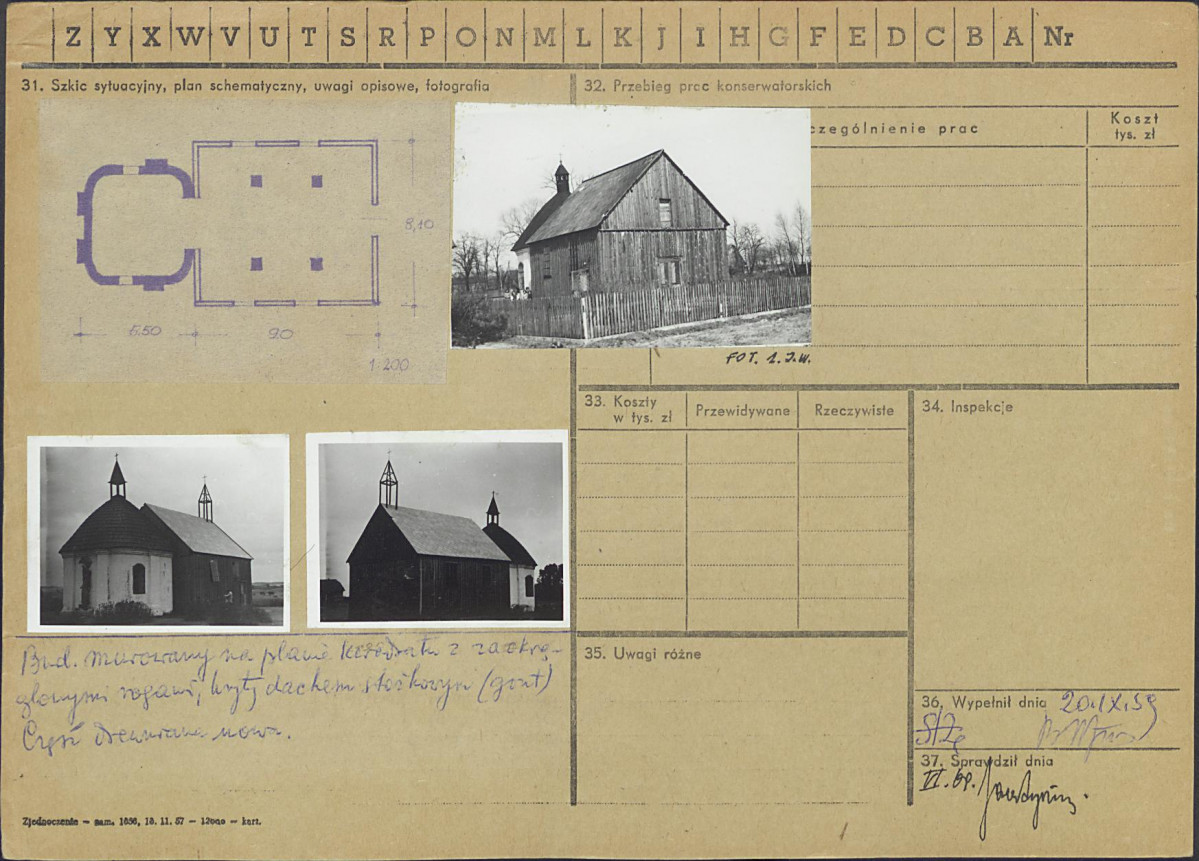 Z Y X W V U T S R P O N M L K J I H G F E D C B A Nr
31. Szkic sytuacyjny, plan schematyczny, uwagi opisowe, fotografia
8,10
5.50
9.0
1:200
Bud. murowany na planie kwadratu z zaokrą-
glonymi rogami, kryty dachem stożkowym (gont)
Część drewniana nowa.
Zjednoczenie – zam. 1656, 18. 11. 57 – 12000 – kart.
32. Przebieg prac konserwatorskich
czególnienie prac
Koszt
tys. zł
FOT. 1. J.W.
33. Koszty
w tys. zł
Przewidywane
Rzeczywiste
34. Inspekcje
35. Uwagi różne
36. Wypełnił dnia 20.IX.59
37. Sprawdził dnia